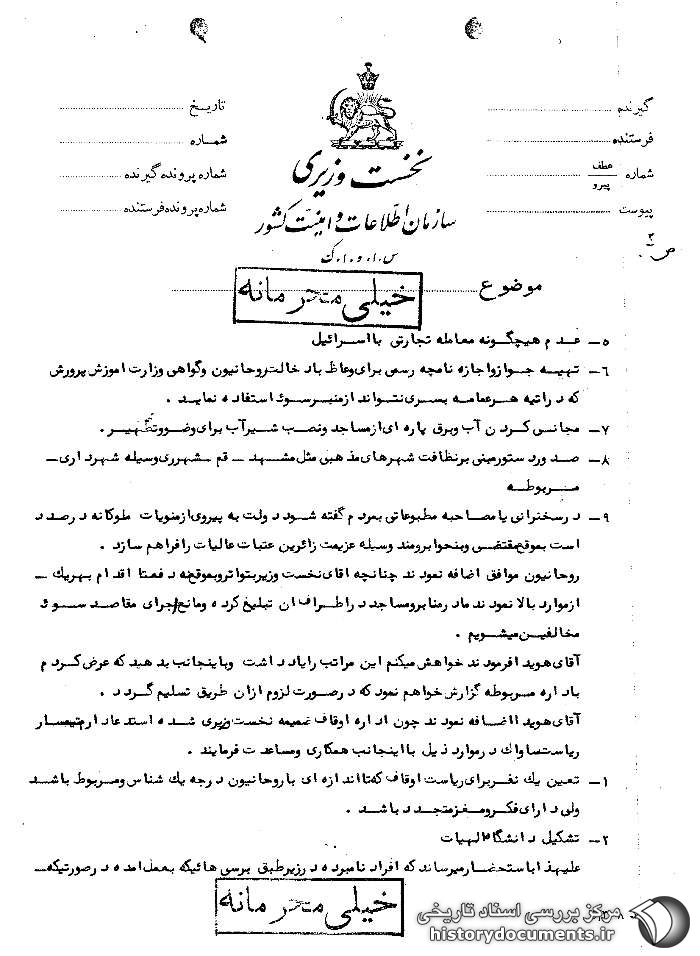 گیرنده
فرستنده
شماره عطف پیرو
پیوست
تاریخ
شماره
شماره پرونده گیرنده
شماره پرونده فرستنده
نخست وزیری
سازمان اطلاعات و امنیت کشور
س.ا.و.ا.ک
ص ۳
موضوع
خیلی محرمانه
۵ــ عدم هیچگونه معامله تجارتی با اسرائیل
۶ــ تهیه جواز و اجازه نامچه رسمی برای وعاظ باد خالت روحانیون وگواهی وزارت آموزش پرورش
که در اتیه هر عمامه بسری نتواند از منبر سوء استفاده نماید .
۷ــ مجانی کردن آب وبرق پاره ای از مساجد ونصب شیر آب برای وضو وتطهیر .
۸ــ صد ور دستور مبنی بر نظافت شهرهای مذ هبی مثل مشهد ــ قم ــ شهرری وسیله شهرداری ــ
مربوطه
۹ــ در سخنرانی یا مصاحبه مطبوعاتی بمردم گفته شود دولت به پیروی از منویات ملوکانه در صدد
است بموقع مقتضی وبنحوابرومند وسیله عزیمت زائرین عتبات عالیات را فراهم سازد .
روحانیون موافق اضافه نمود ند چنانچه اقای نخست وزیر بتواتر وبموقع نه دفعتا اقدام بهریك ــ
از موارد بالا نمود ند ما در منابر و مساجد در اطراف ان تبلیغ کرد ه ومانع اجرای مقاصد سوء
مخالفین میشویم .
آقای هوید ا فرمود ند خواهش میکنم این مراتب را یاد داشت وباینجانب بد هید که عرض کردم
باد اره مربوطه گزارش خواهم نمود که در صورت لزوم از ان طریق تسلیم گرد د .
آقای هوید ا اضافه نمود ند چون اد اره اوقاف ضمیمه نخست وزیری شد ه است دعا دارم تیمسار
ریاست ساواك در موارد ذیل با اینجانب همکاری ومساعد ت فرمایند .
۱ــ تعیین یك نفر برای ریاست اوقاف که تا اندازه ای با روحانیون درجه یك شناس ومربوط باشد
ولی دارای فکر و مغز متجدد باشد .
۲ــ تشکیل دانشگاه الهیات
علیهذا باستحضار میرساند که افراد نامبرد ه در زیر طبق بررسی هائیکه بعمل امد ه در صورتیکه ــ
خیلی محرمانه
مرکز بررسی اسناد تاریخی
historydocuments.ir